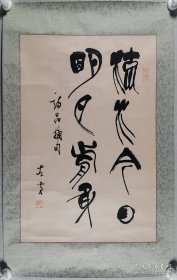 流水今日
明月前身
詩品摘句